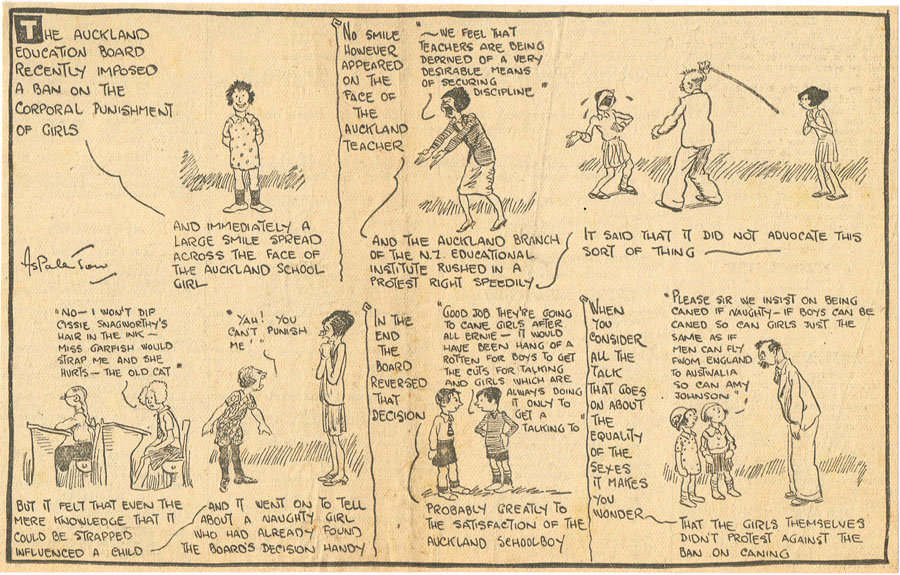 THE AUCKLAND
EDUCATION BOARD
RECENTLY IMPOSED
A BAN ON THE
CORPORAL PUNISHMENT
OF GIRLS
AND IMMEDIATELY A
LARGE SMILE SPREAD
ACROSS THE FACE OF
THE AUCKLAND SCHOOL
GIRL
NO SMILE
HOWEVER
APPEARED
ON THE
FACE OF
THE
AUCKLAND
TEACHER
"~WE FEEL THAT
TEACHERS ARE BEING
DEPRIVED OF A VERY
DESIRABLE MEANS
OF SECURING
DISCIPLINE"
AND THE AUCKLAND BRANCH
OF THE N.Z. EDUCATIONAL
INSTITUTE RUSHED IN A
PROTEST RIGHT SPEEDILY
IT SAID THAT IT DID NOT ADVOCATE THIS
SORT OF THING
"NO-I WON'T DIP
CISSIE SNAGWORTHY'S
HAIR IN THE INK-
MISS GARFISH WOULD
STRAP ME AND SHE
HURTS-THE OLD CAT"
BUT IT FELT THAT EVEN THE
MERE KNOWLEDGE THAT IT
COULD BE STRAPPED
INFLUENCED A CHILD
"YAH! YOU
CAN'T PUNISH
ME!"
AND IT WENT ON TO TELL
ABOUT A NAUGHTY GIRL
WHO HAD ALREADY FOUND
THE BOARD'S DECISION HANDY
IN THE
END
THE
BOARD
REVERSED
THAT
DECISION
"GOOD JOB THEY'RE GOING
TO CANE GIRLS AFTER
ALL ERNIE-IT WOULD
HAVE BEEN HANG OF A
ROTTEN FOR BOYS TO GET
THE CUTS FOR TALKING
AND GIRLS WHICH ARE
ALWAYS DOING
IT ONLY TO
GET A
TALKING TO"
PROBABLY GREATLY TO
THE SATISFACTION OF THE
AUCKLAND SCHOOLBOY
WHEN
YOU
CONSIDER
ALL THE
TALK
THAT GOES
ON ABOUT
THE
EQUALITY
OF THE
SEXES
IT MAKES
YOU
WONDER
"PLEASE SIR WE INSIST ON BEING
CANED IF NAUGHTY-IF BOYS CAN BE
CANED SO CAN GIRLS JUST THE
SAME AS IF
MEN CAN FLY
FWOM ENGLAND
TO AUSTWALIA
SO CAN AMY
JOHNSON"
THAT THE GIRLS THEMSELVES
DIDN'T PROTEST AGAINST THE
BAN ON CANING